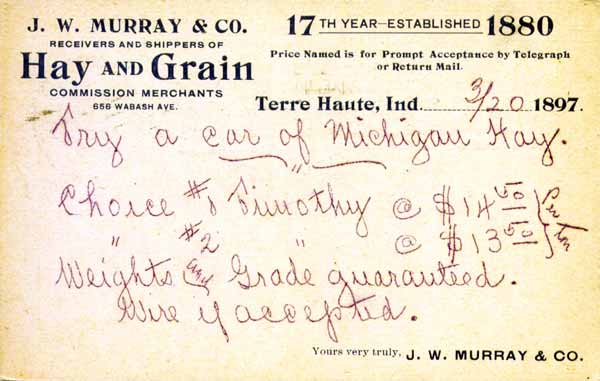 J. W. MURRAY & CO.
RECEIVERS AND SHIPPERS OF
Hay AND Grain
COMMISSION MERCHANTS
656 WABASH AVE.
17TH YEAR—ESTABLISHED 1880
Price Named is for Prompt Acceptance by Telegraph
or Return Mail.
Terre Haute, Ind. 3/20 1897.
Try a car of Michigan Hay.
"
Choice #1 Timothy @ $14.50 } Per Ton
" #2 " @ $13.50
Weights and Grade guaranteed.
Wire if accepted.
Yours very truly, J. W. MURRAY & CO.